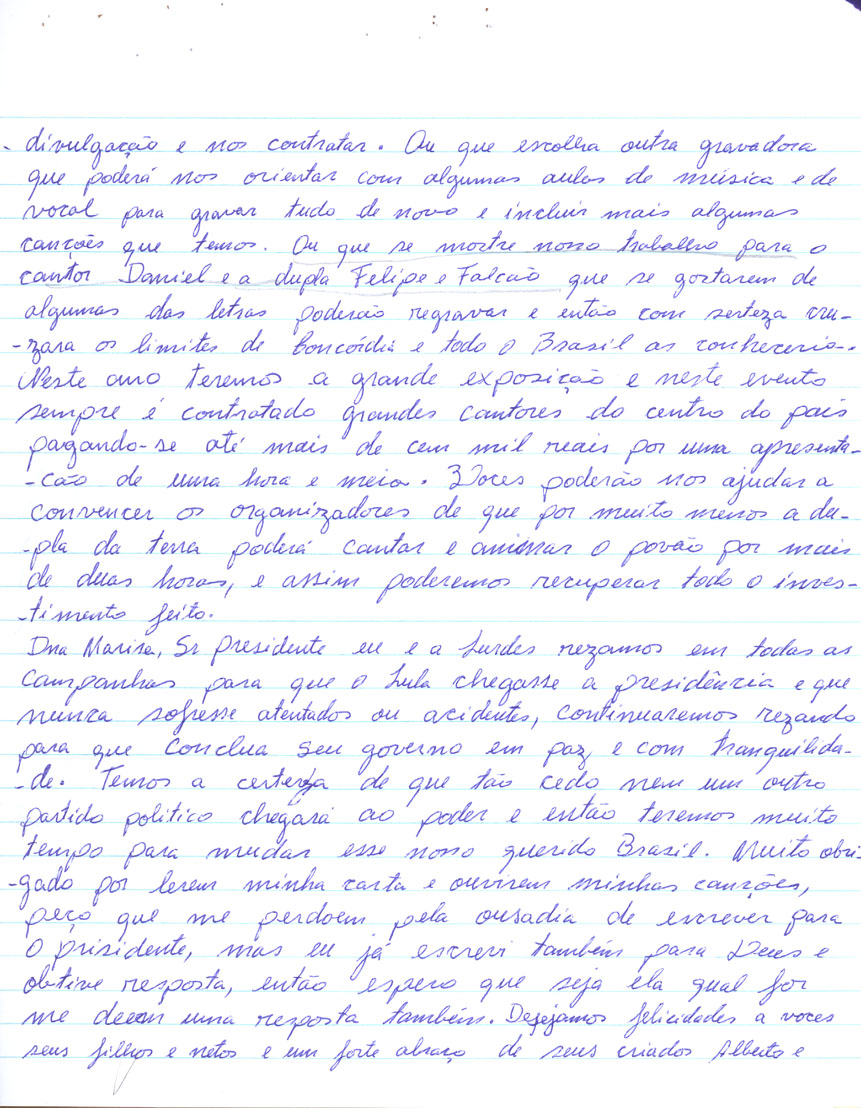 - divulgação e nos contratar. Ou que escolha outra gravadora
que poderá nos orientar com algumas aulas de música e de
vocal para gravar tudo de novo e incluir mais algumas
canções que temos. Ou que se mostre nosso trabalho para o
cantor Daniel e a dupla Felipe e Falcão que se gostarem de
algumas das letras poderão regravar e então com serteza cru-
-zara os limites de Concórdia e todo o Brasil as conheceria.
Neste ano teremos a grande exposição e neste evento
sempre é contratado grandes cantores do centro do pais
pagando-se até mais de cem mil reais por uma apresenta-
-cão de uma hora e meia. Voces poderão nos ajudar a
convencer os organizadores de que por muito menos a du-
-pla da terra poderá cantar e animar o povão por mais
de duas horas, e assim poderemos recuperar todo o inves-
-timento feito.
Dna Marisa, Sr presidente eu e a Lurdes rezamos em todas as
campanhas para que o Lula chegasse a presidência e que
nunca sofresse atentados ou acidentes, continuaremos rezando
para que conclua seu governo em paz e com tranquilida-
-de. Temos a certeza de que tão cedo nem um outro
partido politico chegará ao poder e então teremos muito
tempo para mudar esse nosso querido Brasil. Muito obri-
-gado por lerem minha carta e ouvirem minhas canções,
peço que me perdoem pela ousadia de escrever para
o prisidente, mas eu já escrevi também para Deus e
obtive resposta, então espero que seja ela qual for
me deem uma resposta também. Desejamos felicidades a voces
seus filhos e netos e um forte abraço de seus criados Alberto e